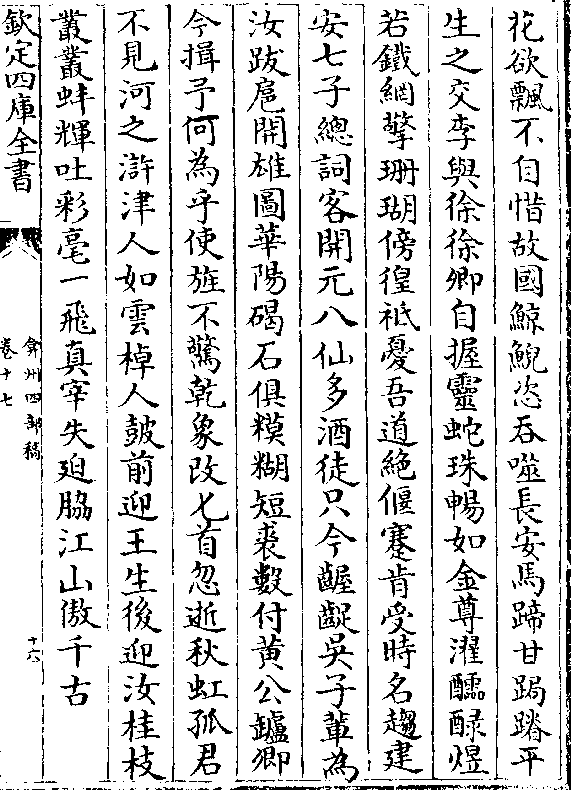 花欲飄不自惜故國鯨鯢恣吞噬長安馬蹄甘跼蹐平
生之交李與徐徐卿自握靈蛇珠暢如金尊濯醽醁煜
若鐵網擎珊瑚傍徨祗憂吾道絶偃蹇肯受時名趨建
安七子總詞客開元八仙多酒徒只今齷齪吳子輩為
汝跋扈開雄圖華陽碣石俱糢糊短裘數付黄公鑪卿
今揖予何為乎使旌不驚乾象改匕首忽逝秋虹孤君
不見河之滸津人如雲棹人皷前迎王生後迎汝桂枝
叢叢蚌輝吐彩毫一飛真宰失廹脇江山傲千古
欽定四庫全書
弇州四部稿
卷十七
十六